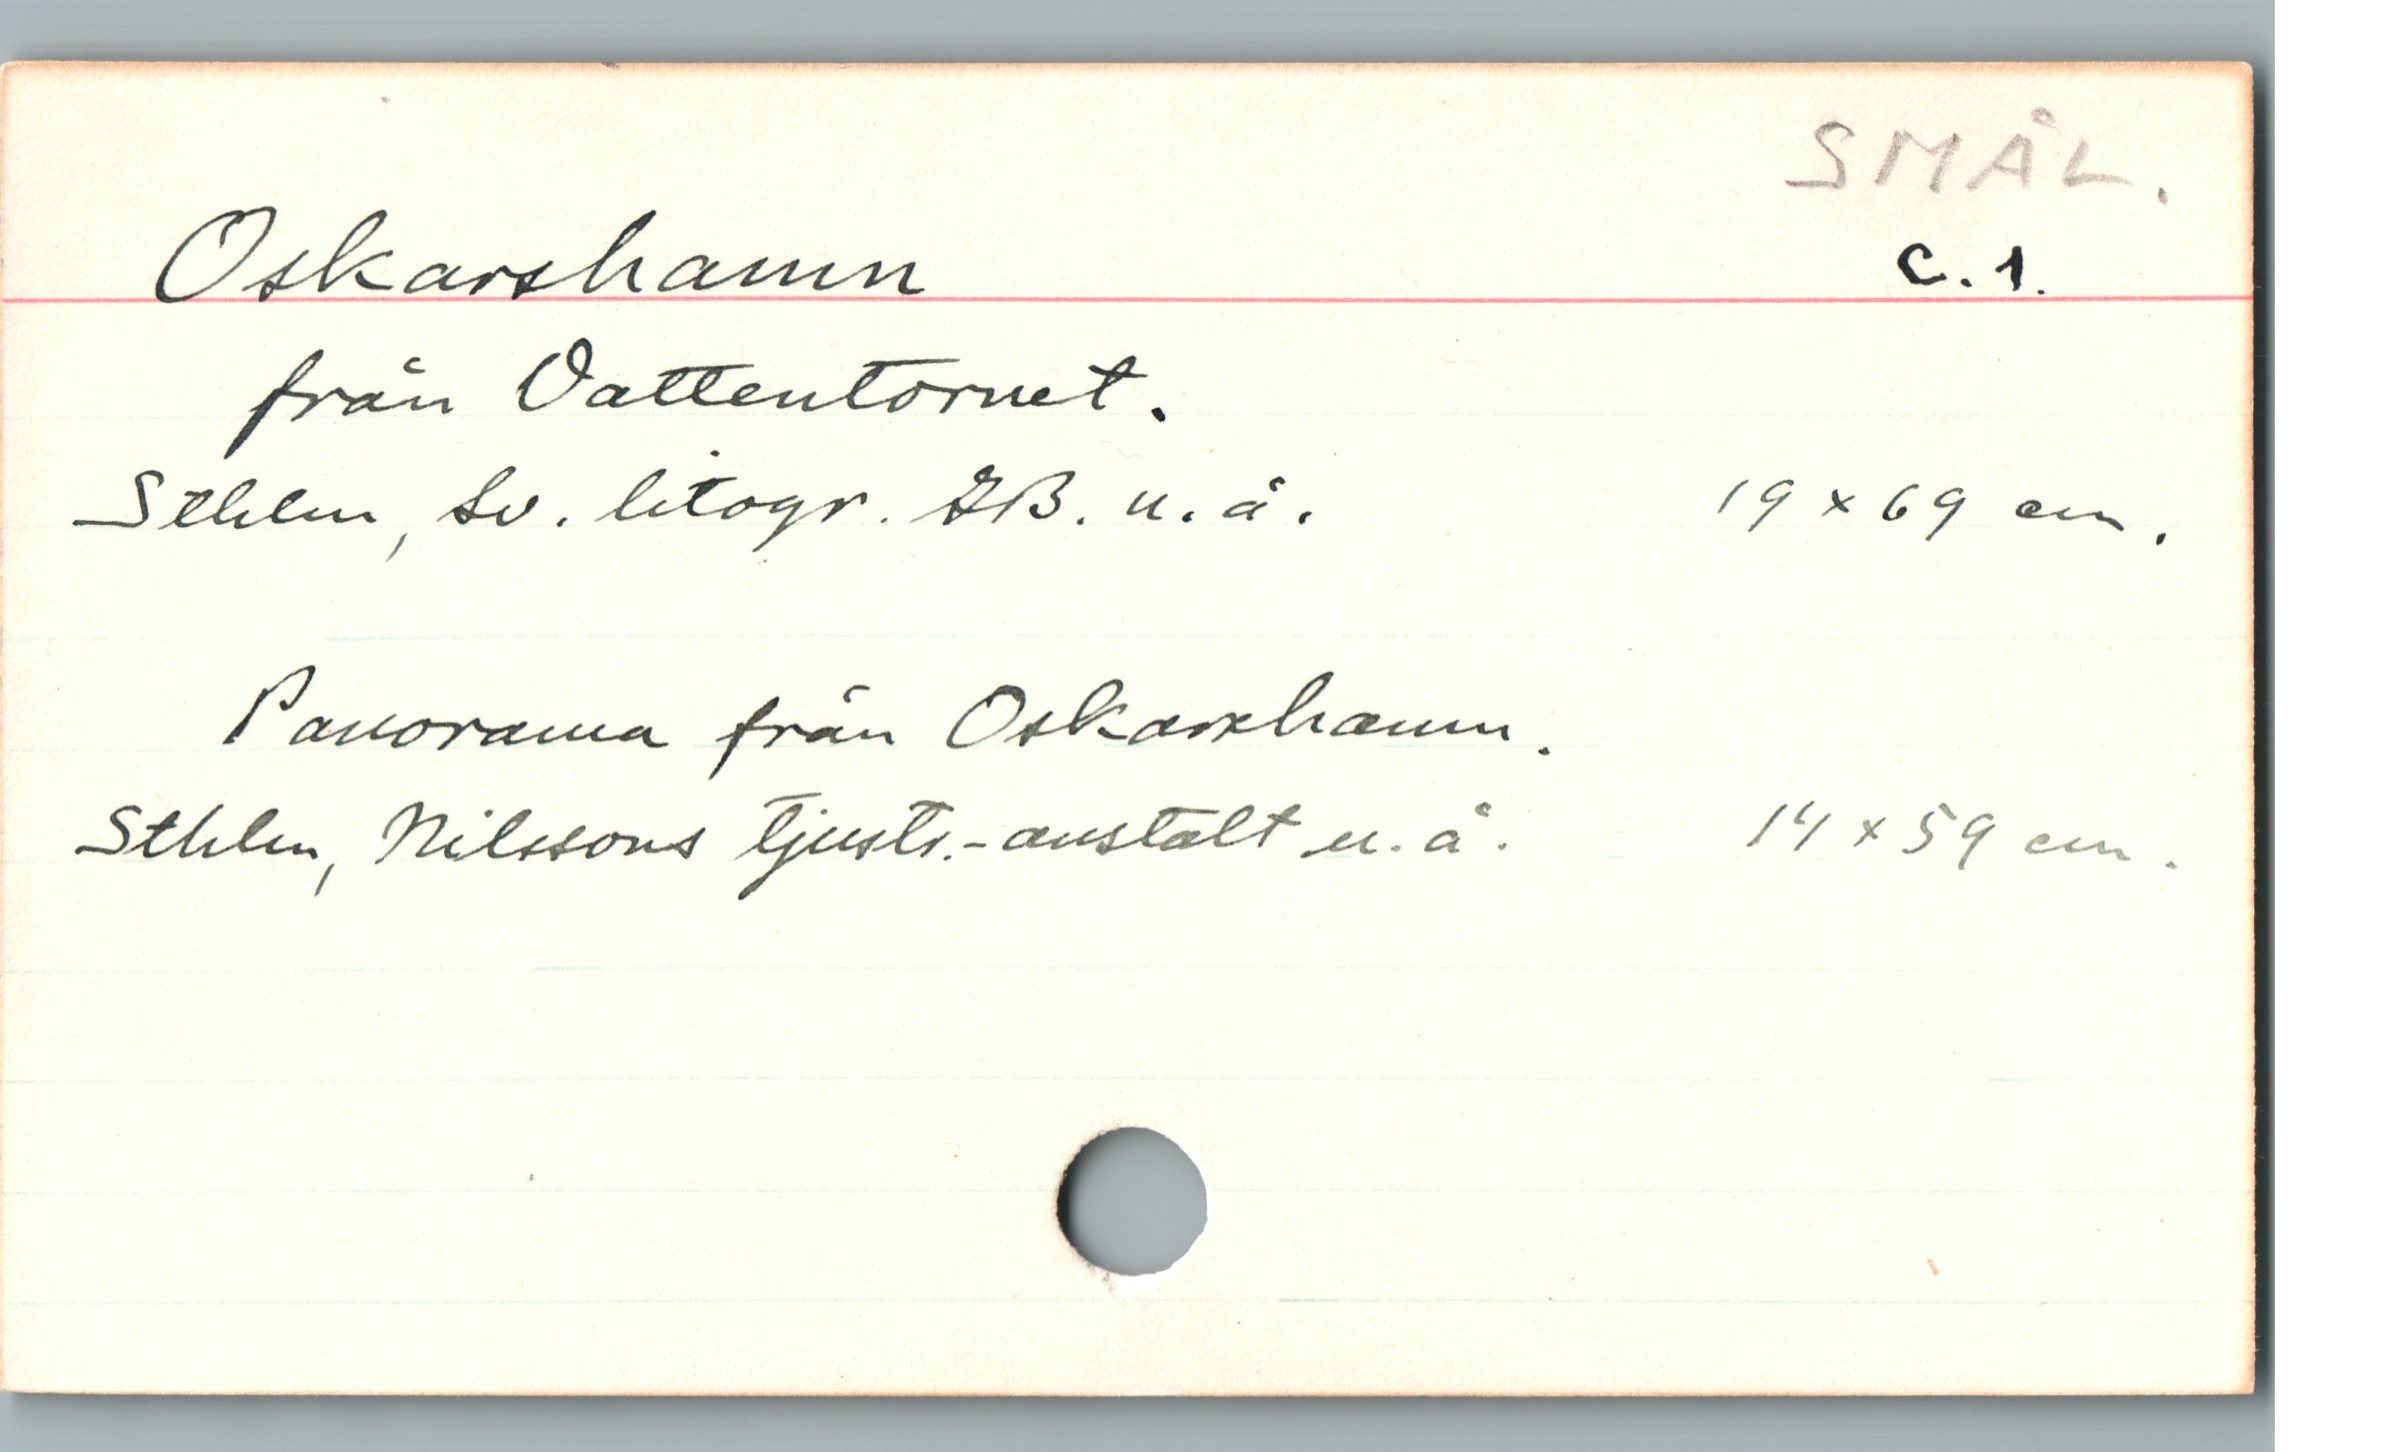 SMÅL.
Oskarshamn C. 1.
från Vattentornet.
Sthlm, Sv. litogr. AB. u. å. 19 x 69 cm.
Panorama från Oskarshamn.
Sthlm, Nilssons ljustr.-anstalt u. å. 14 x 59 cm.